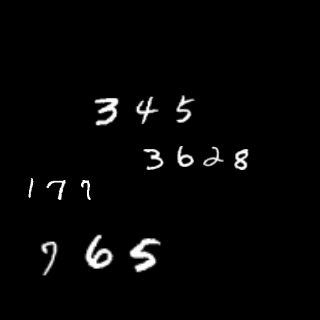 345
3628
177
765